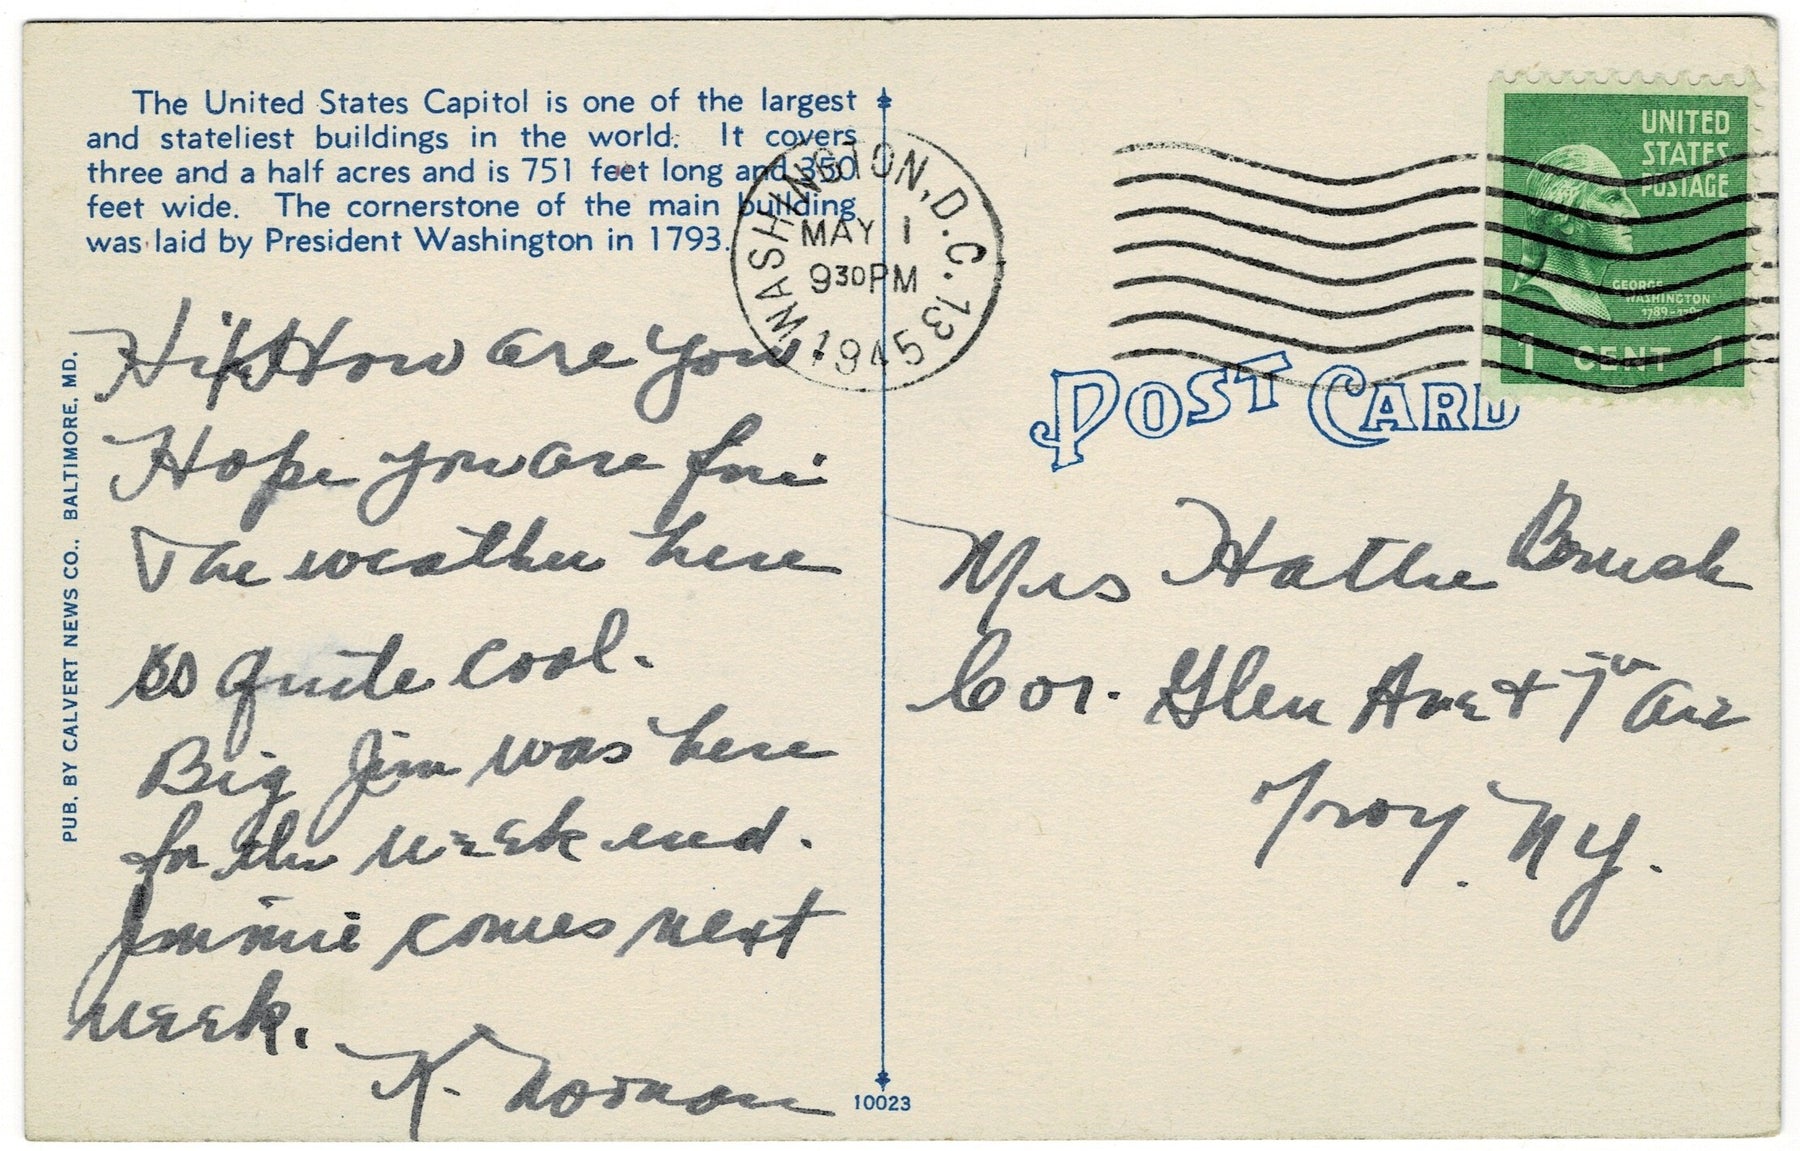 The United States Capitol is one of the largest
and stateliest buildings in the world. It covers
three and a half acres and is 751 feet long and 350
feet wide. The cornerstone of the main building
was laid by President Washington in 1793.
PUB. BY CALVERT NEWS CO., BALTIMORE, MD.
Hi! How are you.
Hope you are fine.
The weather here
is quite cool.
Big Jim was here
for the week end.
Jimmie comes next
week.
K. Norman
10023
WASHINGTON, D.C. 13
MAY 1
930PM
1945
UNITED
STATES
POSTAGE
GEORGE
WASHINGTON
1 CENT 1
POST CARD
Mrs Hattie
Cor. Glen Ave & 7th Ave
Troy. NY.